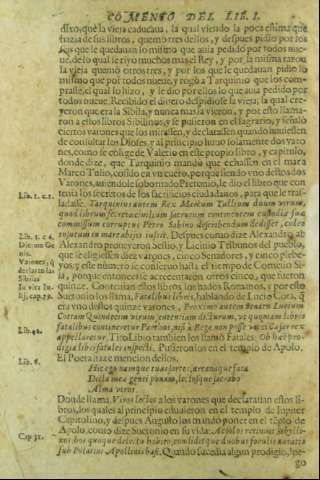 COMENTO DEL LIB. I.
dixo, que la vieja caducaua, la qual viendo la poca estima que
hazia de sus libros, quemò tres dellos, y despues pidio por los
seis que le quedauan lo mismo que auia pedido por todos nue
ue, de lo qual se riyo mucho mas el Rey, y por la misma razon
la vieja quemò otros tres, y por los que le quedauan pidio lo
mismo que por todos nueue, y rogò a Tarquinio que los com-
prasse, el qual lo hizo, y le dio por ellos lo que auia pedido por
todos nueue. Recibido el dinero despidiose la vieja, la qual cre-
yeron que era la Sibila, y nunca mas la vieron, y por esto llama-
ron a estos libros Sibilinos, y se pusieron en el sagrario, y señalo
ciertos varones que los mirassen, y declarassen quando huuiessen
de consultar los Dioses, y al principio huuo solamente dos varo
nes, como se colige de Valerio en este propio libro, y capitulo,
donde dize, que Tarquinio mandò que echassen en el mar a
Marco Tulio, cosido en vn cuero, porque siendo vno de los dos
Varones, auiendole sobornado Petronio, le dio el libro que con
tenia los secretos de los sacrificios ciudadanos, para que le tras-
ladasse. Tarquinius autem Rex Marcum Tullium duum virum,
quod librum secreta ciuilium sacrorum continentem custodiæ suæ
commissum corruptus Petro Sabino describendum dedisset, culeo
insutum in mare abijci iussit. Despues como dize Alexandro ab
Alexandro proueyeron Sestio, y Licinio Tribunos del pueblo,
que se eligiessen diez varones, cinco Senadores, y cinco plebe-
yos, y este numero se conseruò hasta el tiempo de Cornelio Si-
la, porque entonces se acrecentaron otros cinco, que fueron
quinze. Contenian estos libros los hados Romanos, y por esto
Suetonio los llama, Fatalibus libris, hablando de Lucio Cota, q̃
era vno destos quinze varones, Proximo autem Senatu Lucium
Cottam Quindecim virum sententiam dicturum, vt quoniam libris
fatalibus contineretur Parthos nisi à Rege non posse vinci Cæsar rex
appellaretur. Tito Libio tambien los llamò Fatales. Ob hæc pro-
digia libri fatales inspecti. Pusieronlos en el templo de Apolo.
El Poeta haze mencion dellos.
Hic ego namque tuas sortes, arcanaque fata
Dicta meæ genti ponam, lectosque sacrabo
Alma viros.
Donde llama, Viros lectos a los varones que declarauan estos li-
bros, los quales al principio estuuieron en el templo de Iupiter
Capitolino, y despues Augusto los mandò poner en el tẽplo de
Apolo, como dize Suetonio en su vida: Ac solos retinuit Sibylli-
nos, hos quoque delectu habito, condiditque duobus forulis auratis
sub Palatini Apollinis basi. Quando sucedia algun prodigio, lue-
go
Lib. 1. c. 1.
Lib. 1. c. 6.
Lib. 42.
Lib. 6.
Cap. 31.